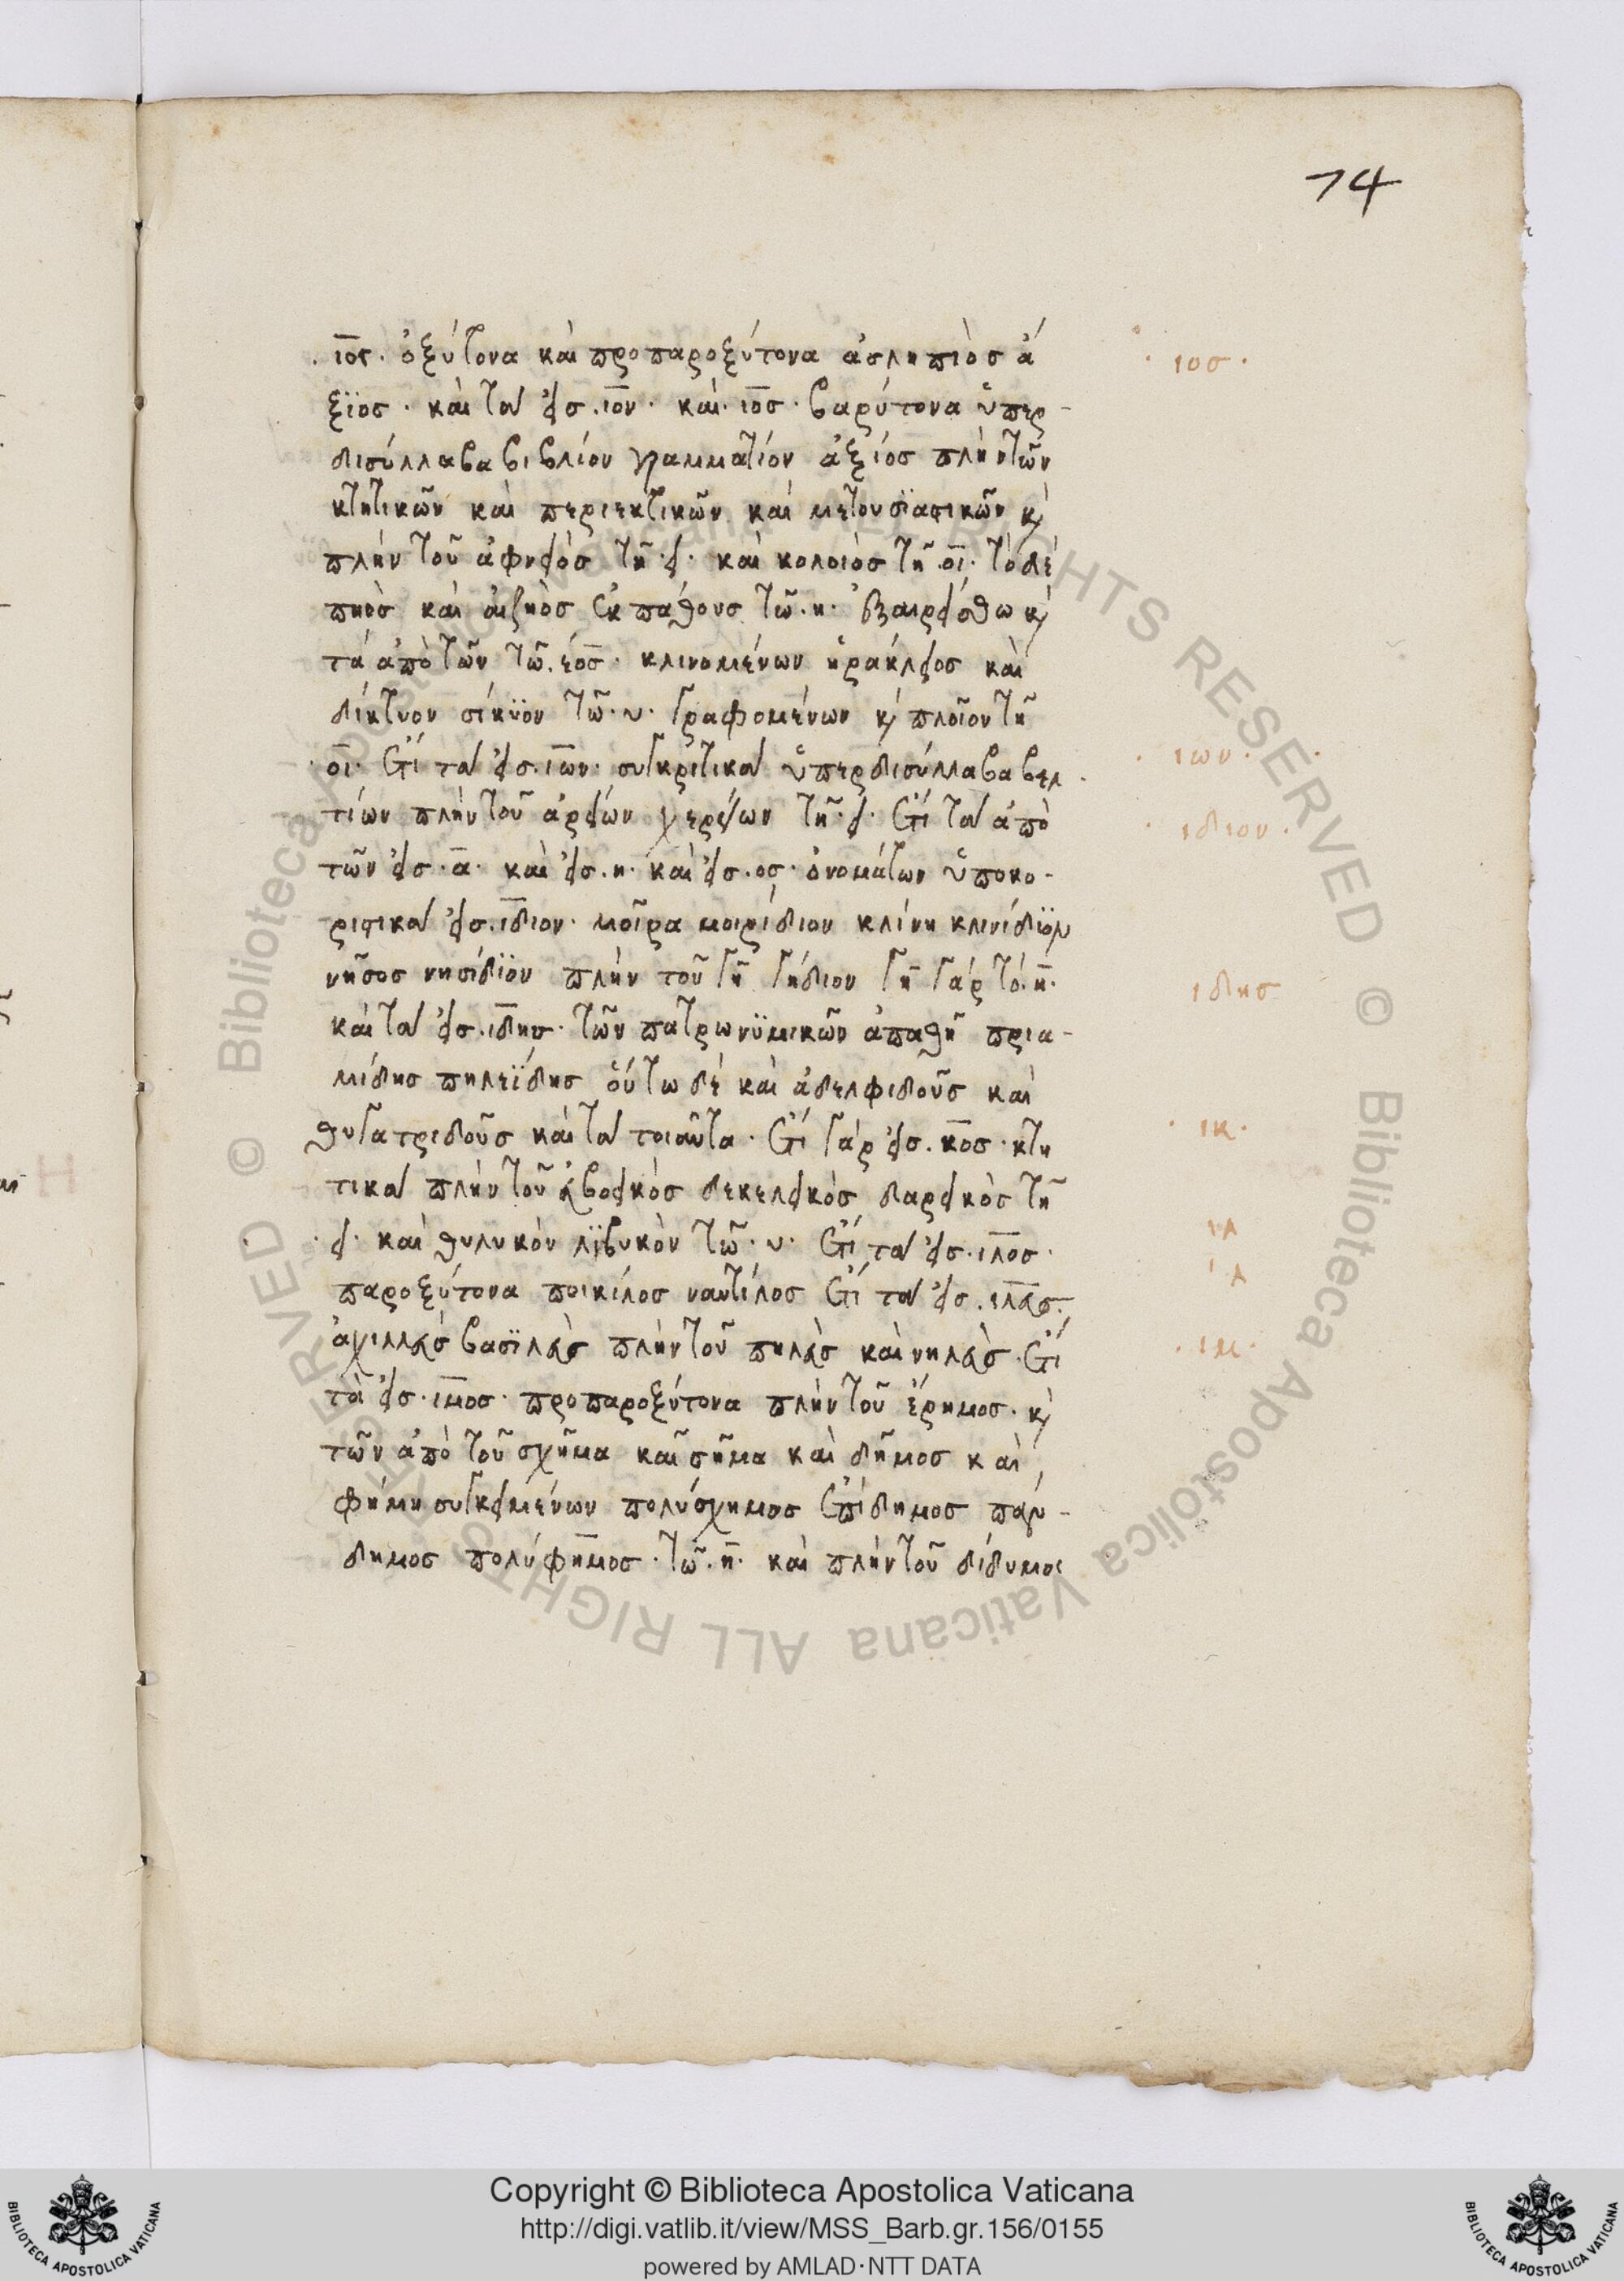 74
. ιος. ὀξύτονα καὶ προπαροξύτονα ἀσληπιὸσ ἄ
ξϊοσ · καὶ τὰ εἰσ . ιον · καὶ · ιοσ · βαρύτονα ὑπερ-
δισύλλαβα βιβλίον γραμματίον ἀξίοσ πλὴν τῶν
κτητικῶν καὶ περιεκτικῶν καὶ μετουσϊαστικῶν κ
πλὴν τοῦ ἀφνειὸσ τῆ · ει · καὶ κολοιὸσ τῆ οι · τὸ δὲ
πηὸσ καὶ αἰζηὸσ ἐκ πάθουσ τῶ . η · ἐξαιρείσθω κ
τὰ ἀπὸ τῶν τῶ . έοσ · κλινομένων ἡράκλειοσ καὶ
δίκτυον σίκϋον τῶ · υ · γραφομένων κ πλοῖον τῆ
οι · ἔτι τὰ εἰσ . ιων · συγκριτικὰ ὑπερδισύλλαβα βελ
τίων πλὴν τοῦ ἀρείων χερείων τῆ · ει · ἔτι τὰ ἀπὸ
τῶν εἰσ · α · καὶ εἰσ . η · καὶ εἰσ . οσ · ὀνομάτων ὑποκο-
ριστικὰ εἰσ . ιδιον · μοῖρα μοιρίδιον κλίνη κλινίδϊον
νῆσοσ νησίδϊον πλὴν τοῦ γῆ γήδιον γῆ γάρ τό . η ·
καὶ τὰ εἰσ . ιδησ · τῶν πατρωνϋμικῶν ἀπαθῆ πρια-
μίδησ πηλεΐδησ οὕτω δὲ καὶ ἀδελφιδοῦσ καὶ
θυγατριδοῦσ καὶ τὰ τοιαῦτα · ἔτι γάρ εἰσ . κοσ · κτη
τικὰ πλὴν τοῦ εὐβοεικὸσ δεκελεικὸσ δαρεικὸσ τῆ
· ει · καὶ θυλυκὸν λϊβυκὸν τῶ · υ · ἔτι τὰ εἰσ . ιλοσ ·
παροξύτονα ποικίλοσ ναυτίλοσ ἔτι τὰ εἰσ . ιλευσ .
ἀχιλλεύσ βασϊλεὺσ πλὴν τοῦ πηλεὺσ καὶ νηλεὺσ · ἔτι
τὰ εἰσ · ιμοσ · προπαροξύτονα πλὴν τοῦ ἔρημοσ · κ
τῶν ἀπὸ τοῦ σχῆμα καῖ σῆμα καὶ δῆμοσ καὶ
φήμη συγκειμένων πολύσχημοσ ἐπίδημοσ πάν-
δημοσ πολύφημοσ · τῶ . η · καὶ πλὴν τοῦ δίδυμος
· ιοσ ·
· ιων ·
· ιδιον ·
ιδησ
· ικ ·
ιλ
ιλ
· ιμ ·
Copyright © Biblioteca Apostolica Vaticana
http://digi.vatlib.it/view/MSS_Barb.gr.156/0155
powered by AMLAD·NTT DATA